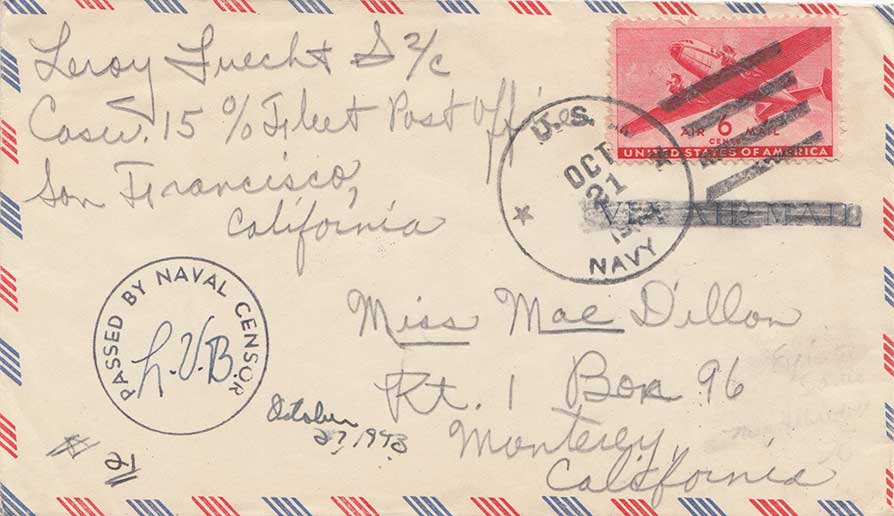 Leroy Fuecht S 2/c
Casu. 15 % Fleet Post Off
San Francisco,
California
AIR 6 MAIL
CENTS
UNITED STATES OF AMERICA
U.S. NAVY
OCT
21
VIA AIR MAIL
PASSED BY NAVAL CENSOR
L.V.B.
Miss Mae Dillon
Rt. 1 Box 96
Monterey,
California
October
27, 1943